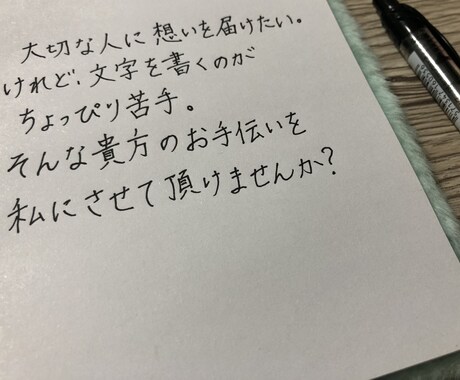 大切な人に想いを届けたい。
けれど、文字を書くのが
ちょっぴり苦手。
そんな貴方のお手伝いを
私にさせて頂けませんか?